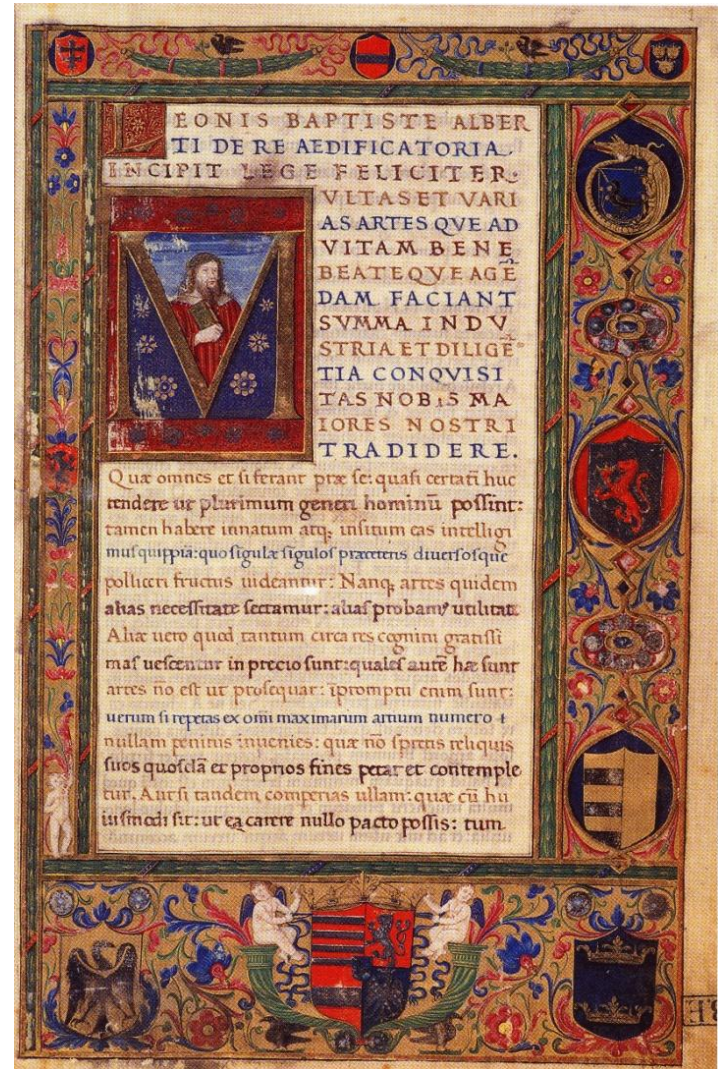 LEONIS BAPTISTE ALBER
TI DE RE AEDIFICATORIA.
INCIPIT LEGE FELICITER.
MVLTAS ET VARI
AS ARTES QVE AD
VITAM BENE
BEATEQVE AGĒ
DAM FACIANT
SVMMA INDV
STRIA ET DILIGĒ
TIA CONQVISI
TAS NOBIS MA
IORES NOSTRI
TRADIDERE.
Quæ omnes et si ferant præ se: quasi certatī huc
tendere ut plurimum generi hominū possint:
tamen habere innatum atq; insitum eas intelligi
mus quippiā: quo sigulæ sigulos præceteris diuersosque
polliceri fructus uideantur: Nanq; artes quidem
alias necessitate sectamur: alias probamꝰ utilitate
Aliæ uero quod tantum circa res cognitu gratissi
mas uescentur in precio sunt: quales autē hæ sunt
artes nō est ut prosequar: īpromptu enim sunt:
uerum si repetas ex omī maximarum artium numero
nullam penitus inuenies: quæ nō spretis reliquis
suos quosdā et proprios fines petat et contemple
tur. Aut si tandem comperias ullam: quæ cū hu
iusmodi sit: ut ea carere nullo pacto possis: tum